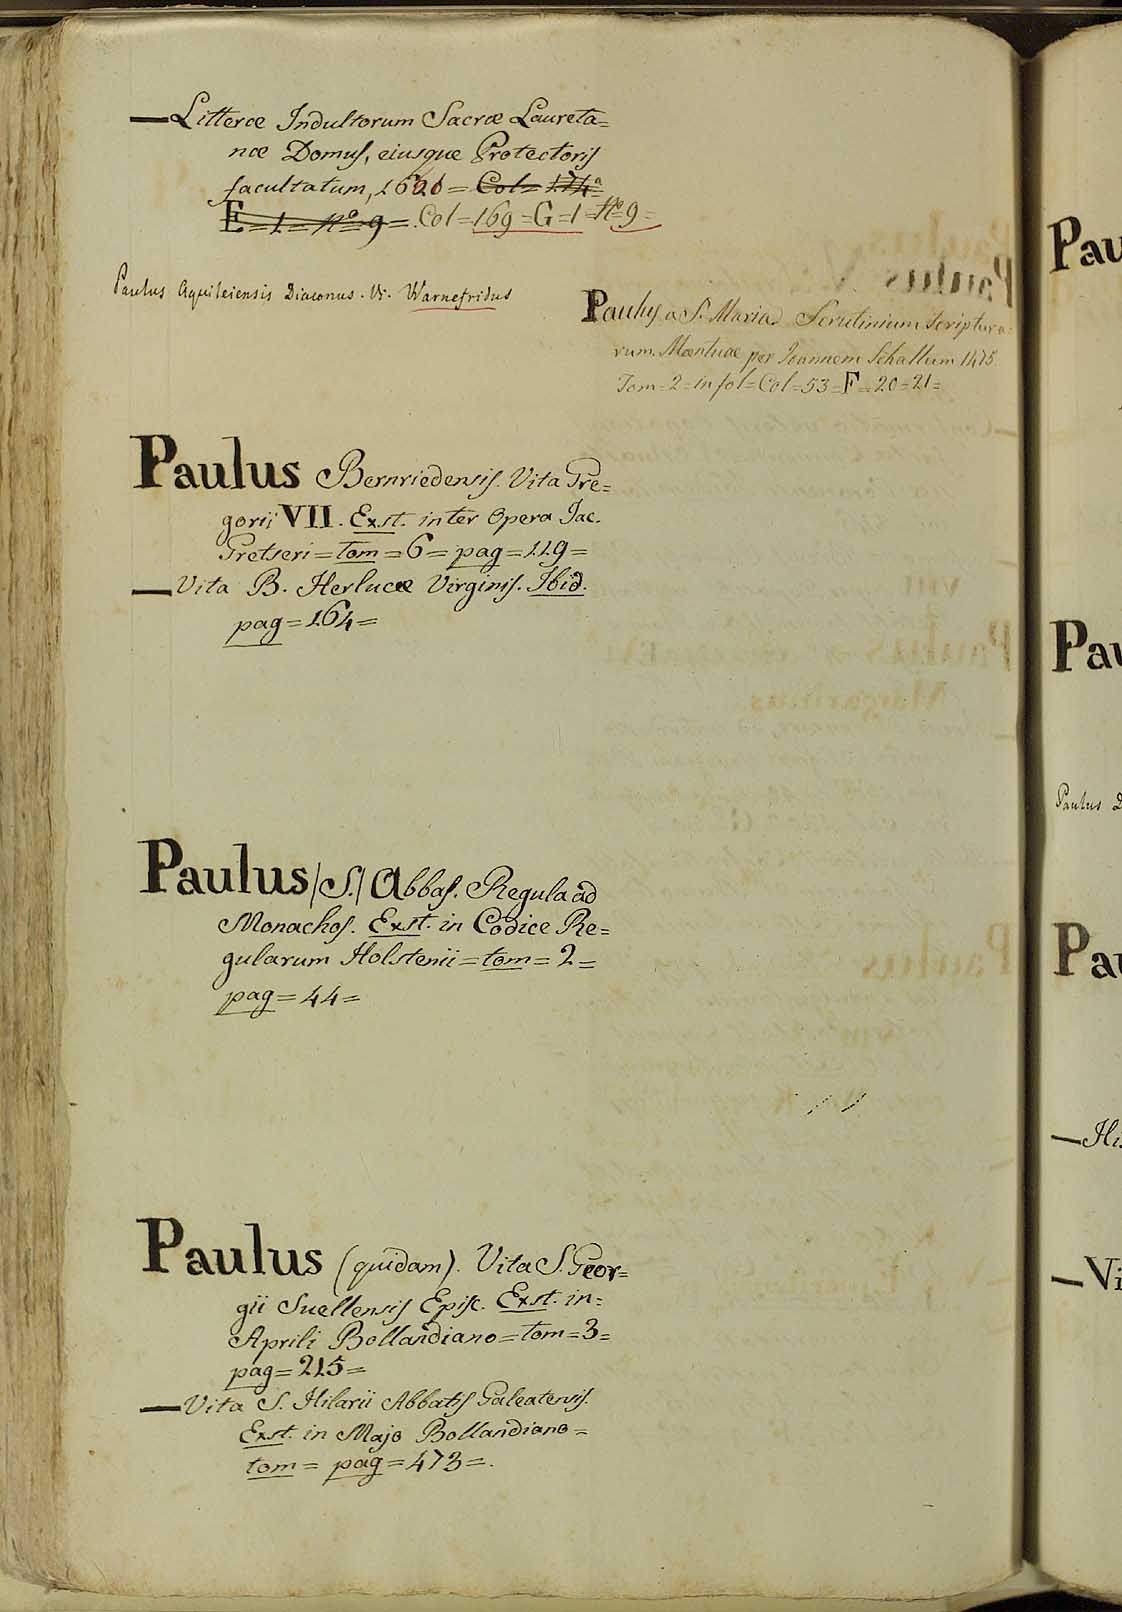 —Litteræ Indultorum Sacræ Laureta=
næ Domus, eiusque Protectoris
facultatum, 1621 = Col = 174ª
E = 1 = nº 9 = Col = 169 = G = 1 = nº 9 =
Paulus Aquileiensis Diaconus. Vi. Warnefridus
Paulus a S. Maria. Scrutinium Scriptura=
rum. Mantuae per Joannem Schallum 1475.
Tom = 2 = in fol = Col = 53 = F = 20 = 21 =
Paulus Bernriedensis. Vita Gre=
gorii VII. Exst. inter Opera Jac.
Gretseri = tom = 6 = pag = 119 =
—Vita B. Herlucæ Virginis. Ibid.
pag = 164 =
Paulus /S./ Abbas. Regula ad
Monachos. Exst. in Codice Re=
gularum Holstenii = tom = 2 =
pag = 44 =
Paulus (quidam). Vita S. Geor=
gii Suellensis Episc. Exst. in=
Aprili Bollandiano = tom = 3 =
pag = 215 =
—Vita S. Hilarii Abbatis Galeatensis.
Exst. in Majo Bollandiano =
tom = pag = 473 =.
Pau
Pau
Paulus D
Pau
—His
—Vi